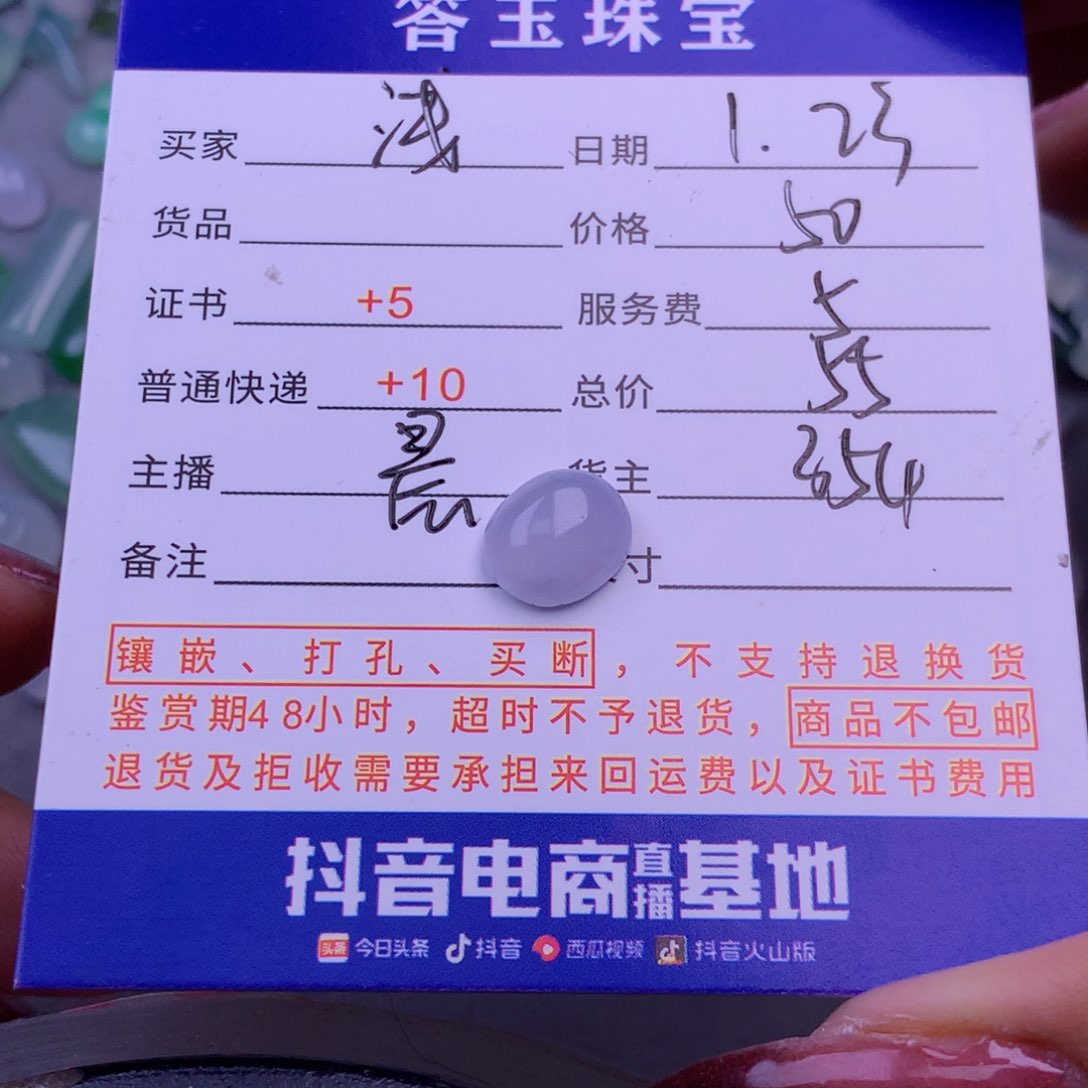 答玉珠宝
买家 浅 日期 1.23
货品 价格 50
证书 +5 服务费 5
普通快递 +10 总价 55
主播 晨 货主 354
备注 寸
镶嵌、打孔、买断，不支持退换货
鉴赏期48小时，超时不予退货，商品不包邮
退货及拒收需要承担来回运费以及证书费用
抖音电商直播基地
头条 今日头条 抖音 西瓜视频 抖音火山版